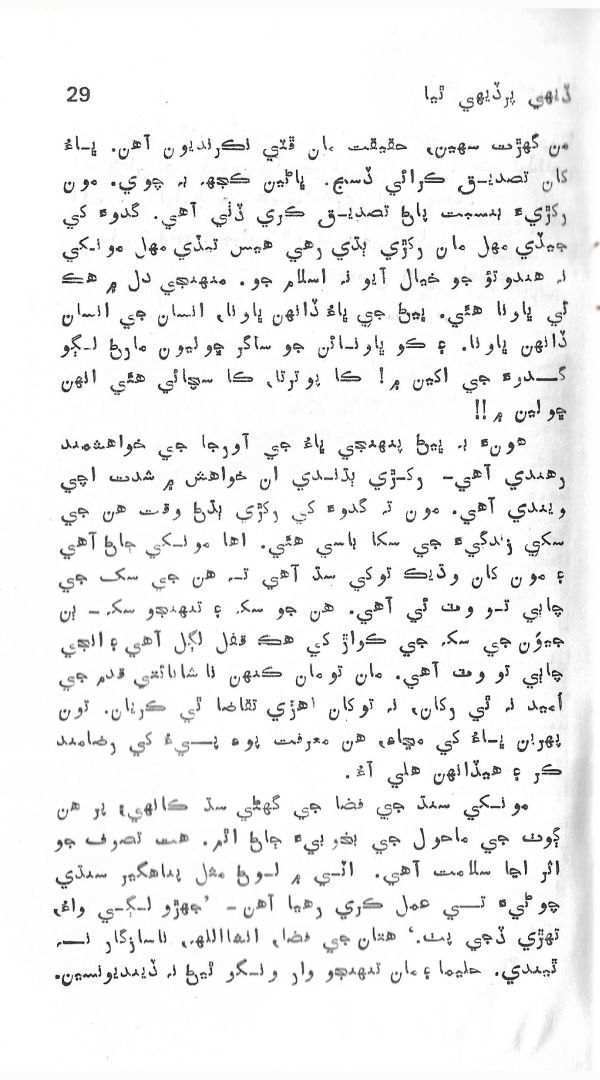 ڏيهي پرڏيهي ٿيا 29
من گهڙت سهين، حقيقت مان ڦٽي نڪرنديون آهن. ڀاءُ
کان تصديق ڪرائي ڏسج. پاڻين ڪجهہ بہ چوي. مون
رکڙيءَ بنسبت پاڻ تصديق ڪري ڏٺي آهي. گدوءَ کي
جيڏي مهل مان رکڙي ٻڌي رهي هيس تڏي مهل مونکي
نہ هندوتؤ جو خيال آيو نہ اسلام جو. منهنجي دل ۾ هڪ
ئي ڀاونا هئي. ڀيڻ جي ڀاءُ ڏانهن ڀاونا، انسان جي انسان
ڏانهن ڀاونا. ۽ ڪو ڀاونائن جو ساگر ڇوليون مارڻ لڳو
گدوءَ جي اکين ۾! ڪا پوترتا، ڪا سچائي هئي انهن
ڇولين ۾!!
هونءَ بہ ڀيڻ پنهنجي ڀاءُ جي آورجا جي خواهشمند
رهندي آهي- رکڙي ٻڌندي ان خواهش ۾ شدت اچي
ويندي آهي. مون تہ گدوءَ کي رکڙي ٻڌڻ وقت هن جي
سکي زندگيءَ جي سکا باسي هئي. اها مونکي ڄاڻ آهي
۽ مون کان وڌيڪ توکي سڌ آهي تہ هن جي سک جي
چاٻي تو وٽ ئي آهي. هن جو سک ۽ تنهنجو سک - ٻن
جيؤن جي سک جي ڪواڙ کي هڪ قفل لڳل آهي ۽ انجي
چاٻي تو وٽ آهي. مان تو مان ڪنهن ناشائستي قدم جي
اُميد نہ ٿي رکان، نہ توکان اهڙي تقاضا ٿي ڪريان. تون
پهريان ڀاءُ کي مڃاءِ، هن معرفت پوءِ پيءُ کي رضامند
ڪر ۽ هيڏانهن هلي آءُ.
مونکي سنڌ جي فضا جي گهڻي سڌ ڪانهي، پر هن
ڳوٺ جي ماحول جي بخوبيءَ ڄاڻ اٿم. هت تصوف جو
اثر اڃا سلامت آهي. اٽي ۾ لوڻ مثل پناهگير سنڌي
چوڻيءَ تي عمل ڪري رهيا آهن- ’جهڙو لڳي واءُ،
تهڙي ڏجي پٺ.‘ هتان جي فضا، انشااللہ، ناسازگار نہ
ٿيندي. حليما ۽ مان تنهنجو وار ونگو ٿيڻ نہ ڏينديونسين.